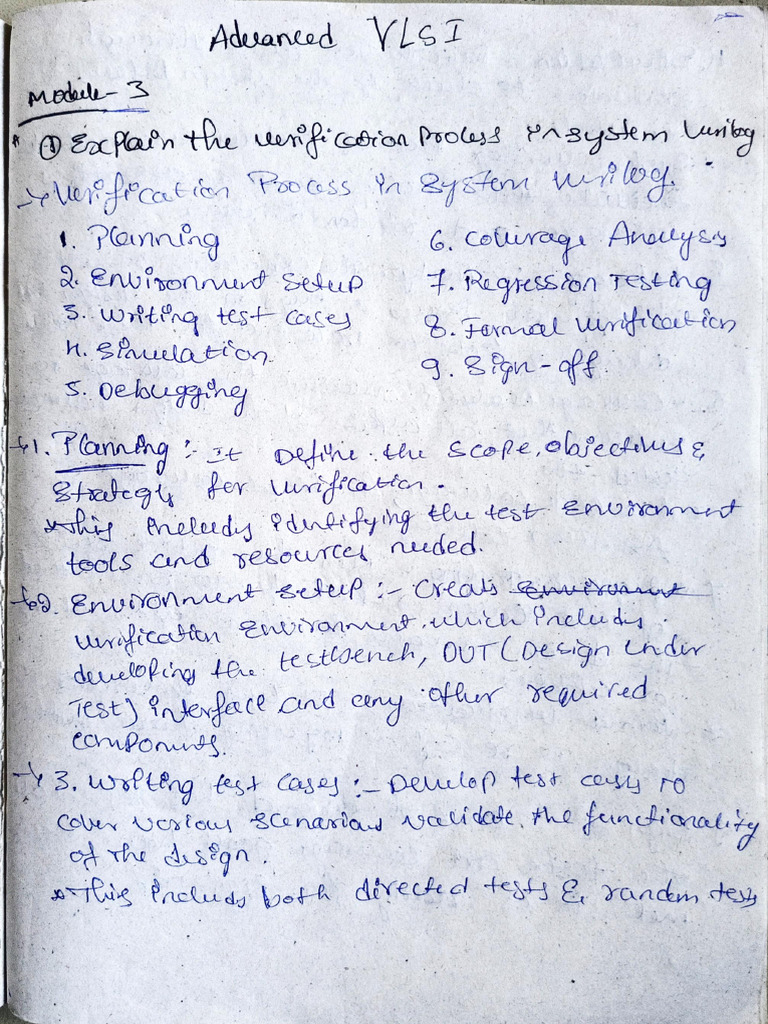 Advanced VLSI
Module-3
* ① Explain the verification process in system verilog
→ Verification Process in System verilog.
1. Planning
2. Environment setup
3. writing test cases
4. Simulation
5. Debugging
6. Coverage Analysis
7. Regression Testing
8. Formal verification
9. Sign-off.
→ 1. Planning :- It Define the scope, objectives &
strategy for verification.
* This includes identifying the test environment
tools and resources needed.
→ 2. Environment setup :- Create Environment
verification environment, which includes
developing the testbench, DUT (Design under
Test) interface and any other required
components.
→ 3. Writing test cases :- Develop test cases to
cover various scenarios validate the functionality
of the design.
* This includes both directed tests & random tests